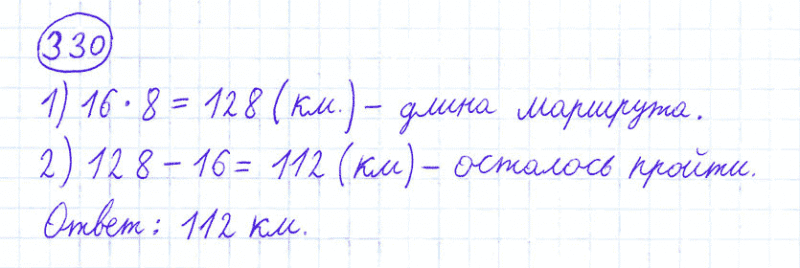 330
1) 16 · 8 = 128 (км.) – длина маршрута.
2) 128 – 16 = 112 (км) – осталось пройти.
Ответ: 112 км.